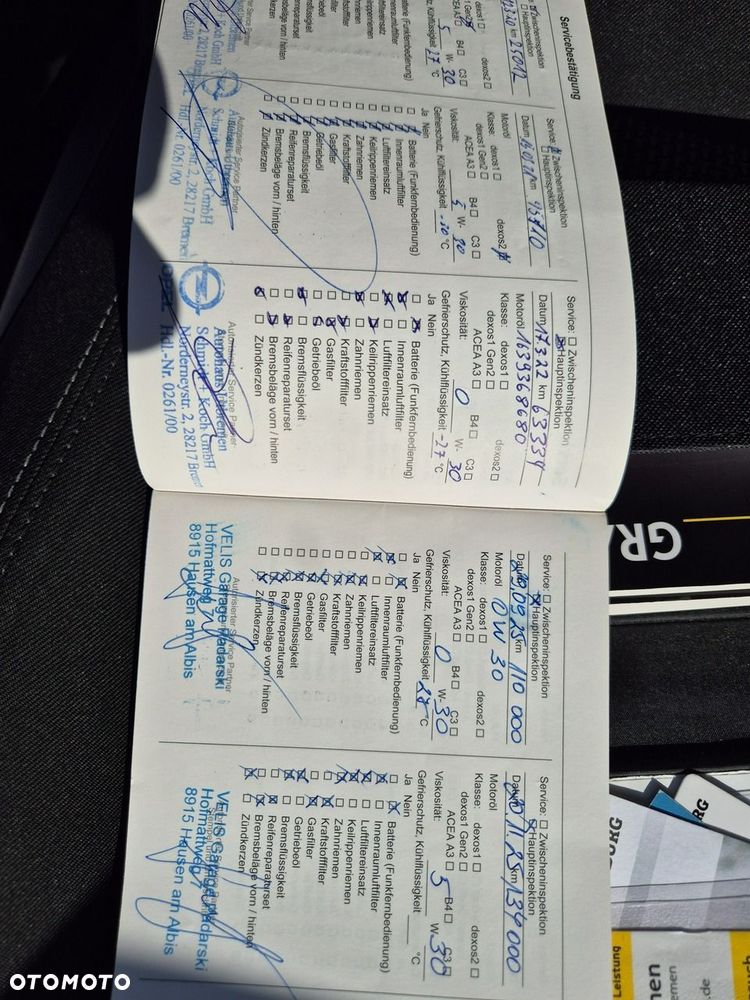 Servicebestätigung
Zwischeninspektion
Hauptinspektion
km 25012
dexos1
dexos2
1 Gen2
ACEA A3 B4 C3
5 W- 30
Gefrierschutz, Kühlflüssigkeit -27 °C
Ja Nein
Batterie (Funkfernbedienung)
Innenraumluftfilter
Luftfiltereinsatz
Keilrippenriemen
Zahnriemen
Kraftstofffilter
Gasfilter
Getriebeöl
Bremsflüssigkeit
Reifenreparaturset
Bremsbeläge vorn / hinten
Zündkerzen
0261/00
Service: Zwischeninspektion
Hauptinspektion
Datum km 45710
Motoröl
Klasse: dexos1 dexos2
dexos1 Gen2
ACEA A3 B4 C3
Viskosität: 5 W- 30
Gefrierschutz, Kühlflüssigkeit -30 °C
Ja Nein
Batterie (Funkfernbedienung)
Innenraumluftfilter
Luftfiltereinsatz
Keilrippenriemen
Zahnriemen
Kraftstofffilter
Gasfilter
Getriebeöl
Bremsflüssigkeit
Reifenreparaturset
Bremsbeläge vorn / hinten
Zündkerzen
Autorisierter Service Partner
Schmidt + Koch GmbH
Norderneystr. 2, 28217 Bremen
Hdl.-Nr. 0261/00
Service: Zwischeninspektion
Hauptinspektion
Datum 17.3.22 km 63334
Motoröl 1639368680
Klasse: dexos1 dexos2
dexos1 Gen2
ACEA A3 B4 C3
Viskosität: 0 W- 30
Gefrierschutz, Kühlflüssigkeit -27 °C
Ja Nein
Batterie (Funkfernbedienung)
Innenraumluftfilter
Luftfiltereinsatz
Keilrippenriemen
Zahnriemen
Kraftstofffilter
Gasfilter
Getriebeöl
Bremsflüssigkeit
Reifenreparaturset
Bremsbeläge vorn / hinten
Zündkerzen
Autorisierter Service Partner
Autohaus Utbremen
Schmidt + Koch GmbH
Norderneystr. 2, 28217 Bremen
OPEL Hdl.-Nr. 0261/00
Service: Zwischeninspektion
Hauptinspektion
Datum km 110 000
Motoröl 0W30
Klasse: dexos1 dexos2
dexos1 Gen2
ACEA A3 B4 C3
Viskosität: 0 W- 30
Gefrierschutz, Kühlflüssigkeit 27 °C
Ja Nein
Batterie (Funkfernbedienung)
Innenraumluftfilter
Luftfiltereinsatz
Keilrippenriemen
Zahnriemen
Kraftstofffilter
Gasfilter
Getriebeöl
Bremsflüssigkeit
Reifenreparaturset
Bremsbeläge vorn / hinten
Zündkerzen
Autorisierter Service Partner
VELIS Garage Madarski
Hofmattweg
8915 Hausen am Albis
Service: Zwischeninspektion
Hauptinspektion
Datum km 134 000
Motoröl
Klasse: dexos1 dexos2
dexos1 Gen2
ACEA A3 B4 C3
Viskosität: 5 W- 30
Gefrierschutz, Kühlflüssigkeit °C
Ja Nein
Batterie (Funkfernbedienung)
Innenraumluftfilter
Luftfiltereinsatz
Keilrippenriemen
Zahnriemen
Kraftstofffilter
Gasfilter
Getriebeöl
Bremsflüssigkeit
Reifenreparaturset
Bremsbeläge vorn / hinten
Zündkerzen
VELIS Garage Madarski
Hofmattweg 7
8915 Hausen am Albis
GRA
RG
Leistung
OTOMOTO